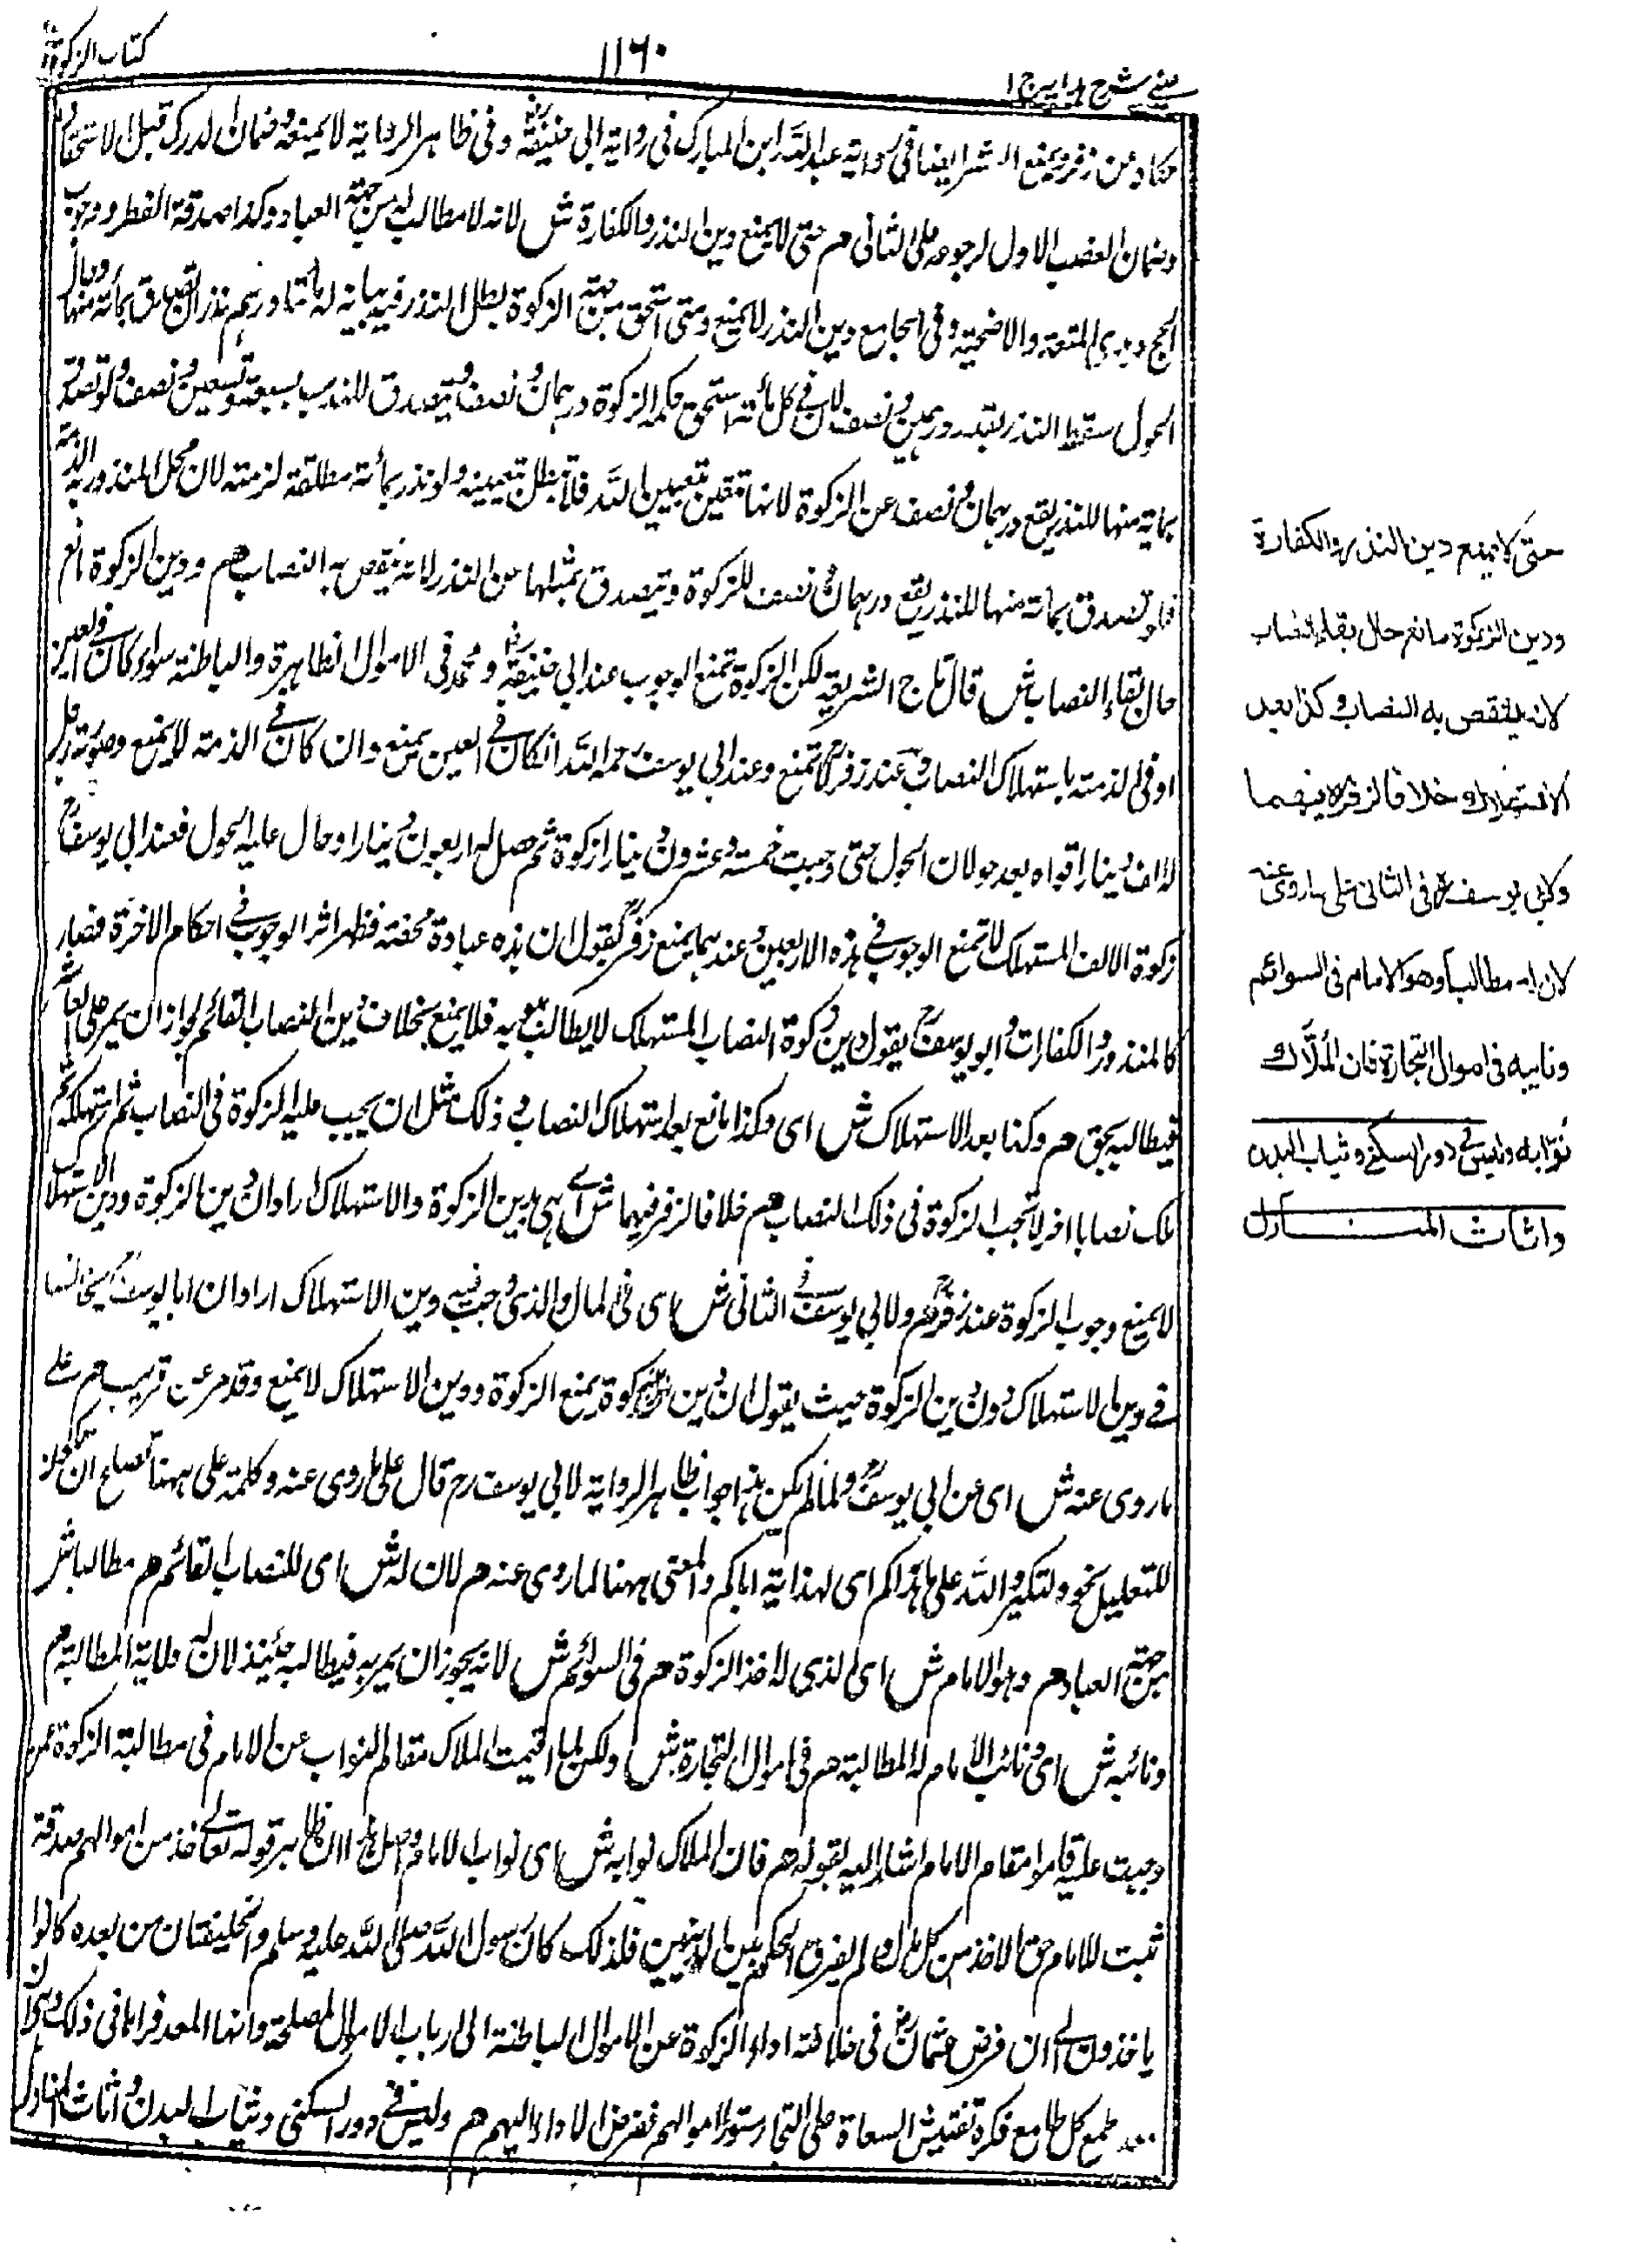 كتاب الزكوة
١١٦٠
عيني شرح هدايه ج ١
عن زفر يمنع العشر ايضا في رواية عبد الله ابن المبارك في رواية ابي حنيفة رض وفي ظاهر الرواية لا يمنعه وضمان الدرك قبل الاستحقاق
وضمان الغصب الاول لرجوعه على الثاني م حتى لا يمنع دين النذر والكفارة ش لانه لا مطالب له من جهة العباد وكذا صدقة الفطر ووجوب
الحج وهدي المتعة والاضحية وفي الجامع دين النذر لا يمنع ومتى استحق من جهة الزكوة بطل النذر فيه بيانه له مائتا درهم نذر ان يتصدق بمائة منها وحال
الحول سقط النذر بقدر درهمين ونصف لان في كل مائة استحق بحكم الزكوة درهمان ونصف ويتصدق للنذر بسبعة وتسعين ونصف ولو تصدق
بماية منها للنذر يقع درهمان ونصف عن الزكوة لانها تتعين بتعيين الله فلا يبطل تعيينه ولو نذر بمائة مطلقة لزمته لان محل المنذور به الذمة
فلو تصدق بمائة منها للنذر يقع درهمان ونصف للزكوة ويتصدق بمثلها عن النذر لانه ينقص به النصاب م ودين الزكوة مانع
حال بقاء النصاب ش قال تاج الشريعة لكن الزكوة تمنع الوجوب عند ابي حنيفة رض ومحمد في الاموال الظاهرة والباطنة سواء كان في العين
او في الذمة باستهلاك النصاب وعند زفر لا تمنع وعند ابي يوسف رحمه الله ان كان في العين يمنع وان كان في الذمة لا يمنع وصورته رجل
له الف دينار اقواه بعد حولان الحول حتى وجبت خمسة وعشرون دينارا زكوة ثم حصل له اربعون دينارا وحال عليه الحول فعند ابي يوسف
زكوة الالف المستهلك لا تمنع الوجوب في هذه الاربعين وعندهما يمنع زفر يقول ان هذه عبادة محضة فظهر اثر الوجوب في احكام الاخرة فصار
كالمنذور والكفارات وابو يوسف يقول دين زكوة النصاب المستهلك لا يطالب به فلا يمنع بخلاف دين النصاب القائم لجواز ان يمر على العاشر
فيطالبه بحق م وكذا بعد الاستهلاك ش اي وكذا مانع بعد استهلاك النصاب وذلك مثل ان يجب عليه الزكوة في النصاب ثم استهلكه ثم
ملك نصابا اخر لا تجب الزكوة في ذلك النصاب م خلافا لزفر فيهما ش اي في دين الزكوة والاستهلاك اراد ان دين الزكوة ودين الاستهلاك
لا يمنع وجوب الزكوة عند زفر م ولابي يوسف في الثاني ش اي في المال الذي وجب فيه دين الاستهلاك اراد ان ابا يوسف يخالفنا
في دين الاستهلاك دون دين الزكوة حيث يقول ان دين الزكوة يمنع الزكوة ودين الاستهلاك لا يمنع وقد مر عن قريب م على
ما روى عنه ش اي عن ابي يوسف ولما لم يكن هذا جواب ظاهر الرواية لابي يوسف رح قال على ما روى عنه وكلمة على ههنا تصلح ان تكون
للتعليل نحو ولتكبروا الله على ما هداكم اي لهدايته اياكم والمعنى ههنا لما روى عنه م لان له ش اي للنصاب القائم م مطالبا ش
من جهة العباد م وهو الامام ش اي الذي له اخذ الزكوة م في السوائم ش لانه يجوز ان يمر به فيطالبه حينئذ لان له ولاية المطالبة م
ونائبه ش اي ونائب الامام له المطالبة م في اموال التجارة ش ولكن لما اقيمت الملاك مقام النواب عن الامام في مطالبة الزكوة عمن
وجبت عليه قاموا مقام الامام اشار اليه بقوله م فان الملاك نوابه ش اي نواب الامام واصل هذا ان ظاهر قوله تعالى خذ من اموالهم صدقة
ثبت للامام حق الاخذ من كل مال ولم يفرق الحكم بين الوجهين فلذلك كان رسول الله صلى الله عليه وسلم والخليفتان من بعده كانوا
ياخذون الى ان فرض عثمان رض في خلافته اداء الزكوة عن الاموال الباطنة الى ارباب الاموال لمصلحة
طمع كل طامع فكره تفتيش السعاة على التجار ستور اموالهم ففرض الاداء اليهم م وليس في دور السكنى وثياب البدن واثاث المنازل
حتى لا يمنع دين النذر والكفارة
ودين الزكوة مانع حال بقاء النصاب
لانه ينتقص به النصاب وكذا بعد
الاستهلاك خلافا لزفر فيهما
ولابي يوسف في الثاني على ما روى عنه
لان له مطالبا وهو الامام في السوائم
ونايبه في اموال التجارة فان المُلّاك
نُوّابه وليس في دور السكنى وثياب البدن
واثاث المنازل